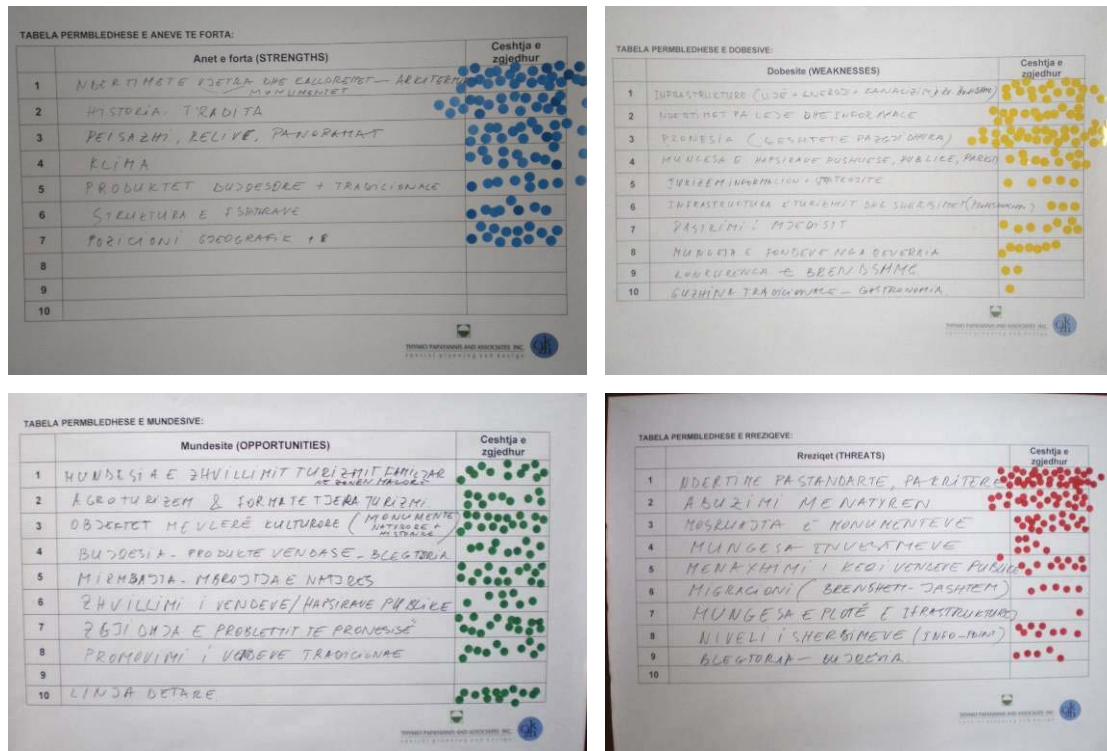 TABELA PERMBLEDHESE E ANEVE TE FORTA:
Anet e forta (STRENGTHS)
Ceshtja e
zgjedhur
1 NDERTIMET E VJETRA DHE KALLDREMET - ARKITEKTU
MONUMENTET
2 HISTORIA, TRADITA
3 PEISAZHI, RELIVE, PANORAMAT
4 KLIMA
5 PRODUKTET BUJQESORE + TRADICIONALE
6 STRUKTURA E FSHATRAVE
7 POZICIONI GJEOGRAFIK
8
9
10
THYMIO PAPAYANNIS AND ASSOCIATES INC.
spacial planning and design
TABELA PERMBLEDHESE E DOBESIVE:
Dobesite (WEAKNESSES)
Ceshtja e
zgjedhur
1 INFRASTRUKTURE (UJE + ENERGJI + KANALIZIM)
2 NDERTIMET PA LEJE DHE INFORMALE
3 PRONESIA (CESHTJET E PAZGJIDHURA)
4 MUNGESA E HAPSIRAVE PUSHUESE, PUBLIKE, PARKU
5 TURIZEM INFORMACION +
6 INFRASTRUKTURA E TURIZMIT DHE SHERBIMET
7 PASTRIMI I MJEDISIT
8 MUNGESA E FONDEVE NGA QEVERIA
9 KONKURENCA E BRENDSHME
10 GUZHINA TRADICIONALE - GASTRONOMIA
THYMIO PAPAYANNIS AND ASSOCIATES INC.
spacial planning and design
TABELA PERMBLEDHESE E MUNDESIVE:
Mundesite (OPPORTUNITIES)
Ceshtja e
zgjedhur
1 MUNDESIA E ZHVILLIMIT TURIZMIT FAMILJAR
NE ZONEN MALORE
2 AGROTURIZEM & FORMATE TJERA TURIZMI
3 OBJEKTET ME VLERË KULTURORE (MONUMENTE
NATYRORE +
HISTORIKE
4 BUJQESIA - PRODUKTE VENDASE - BLEGTORIA
5 MIRMBAJTJA - MBROJTJA E NATYRES
6 ZHVILLIMI I VENDEVE/HAPSIRAVE PUBLIKE
7 ZGJIDHJA E PROBLEMIT TE PRONESISË
8 PROMOVIMI I VENDEVE TRADICIONAE
9
10 LINJA DETARE
THYMIO PAPAYANNIS AND ASSOCIATES INC.
spacial planning and design
TABELA PERMBLEDHESE E RREZIQEVE:
Rreziqet (THREATS)
Ceshtja e
zgjedhur
1 NDERTIME PA STANDARTE, PA KRITERE
2 ABUZIMI ME NATYREN
3 MOSRUAJTJA E MONUMENTEVE
4 MUNGESA INVESTIMEVE
5 MENAXHIMI I KEQI VENDEVE PUBLIKE
6 MIGRACIONI (BRENSHEM - JASHTEM)
7 MUNGESA E PLOTË E IFRASTRUKTURES
8 NIVELI I SHERBIMEVE (INFO-POINT)
9 BLEGTORIA - BUJQESIA
10
THYMIO PAPAYANNIS AND ASSOCIATES INC.
spacial planning and design